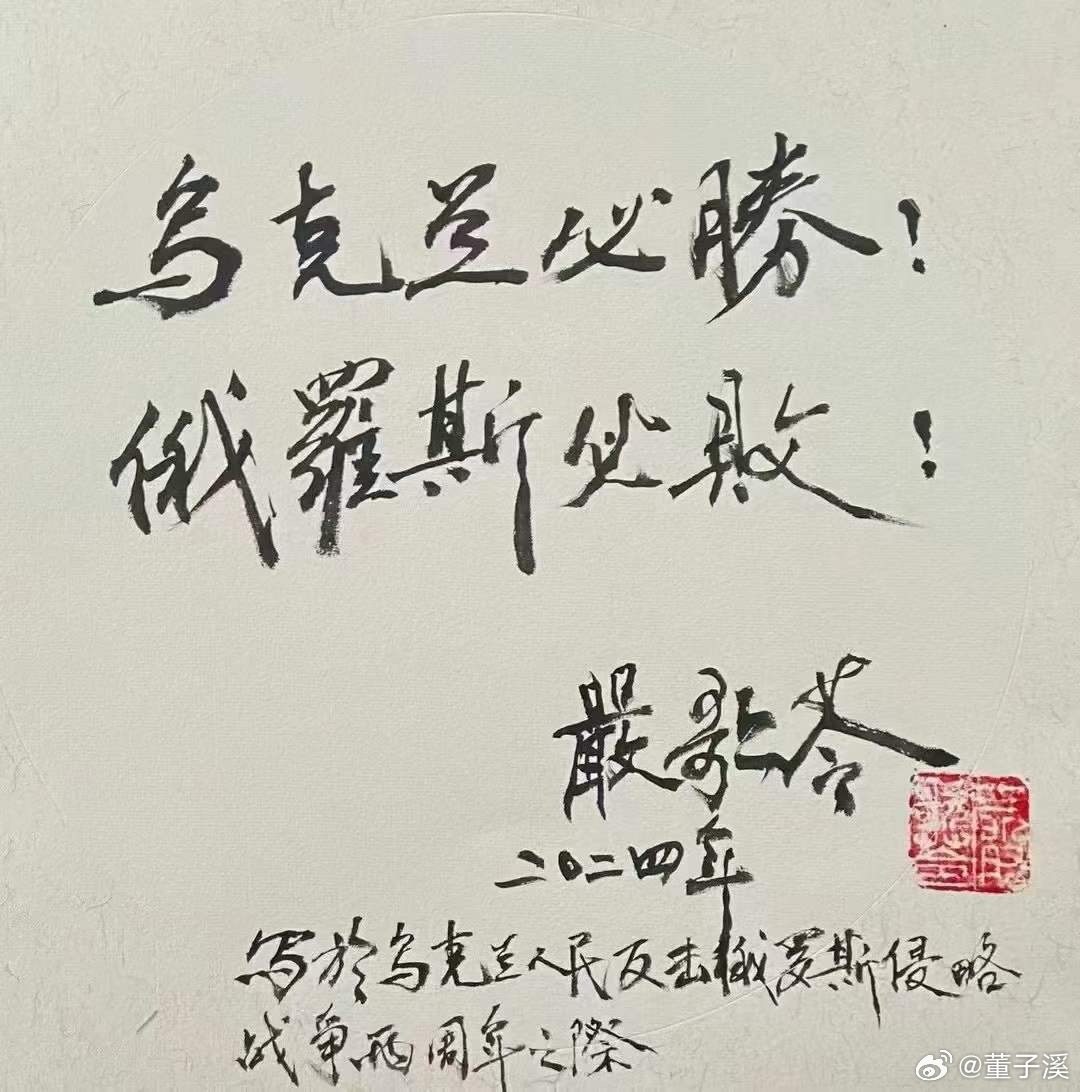 乌克兰必勝!
俄羅斯必敗!
嚴歌苓
二〇二四年
写於乌克兰人民反击俄罗斯侵略
战争两周年之際
@董子溪